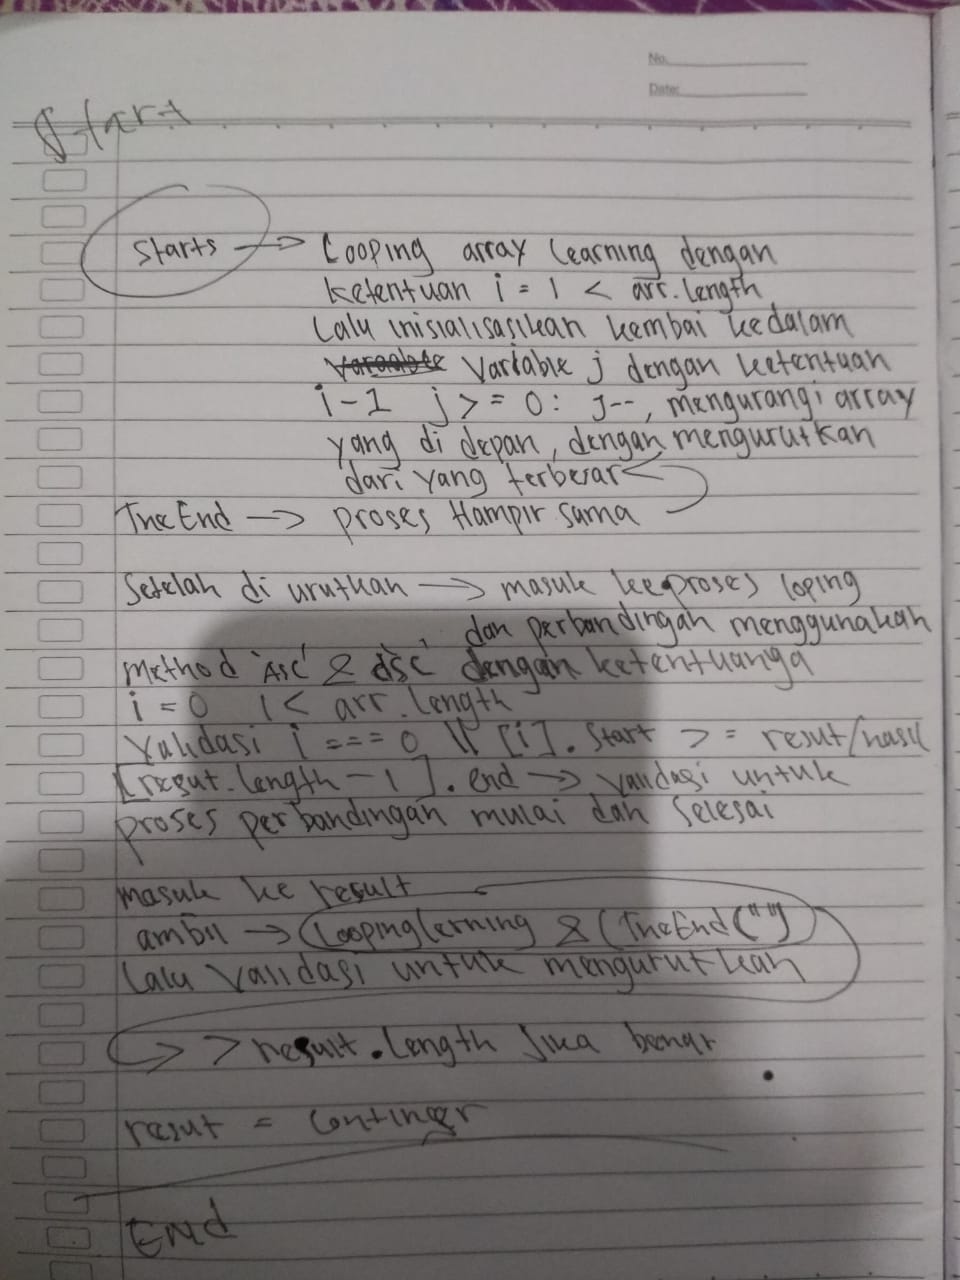 No.
Date:
Start
Starts → Looping array learning dengan
ketentuan i = 1 < arr.length
Lalu inisialisasikan kembai kedalam
Variable j dengan ketentuan
i-1 j >= 0: j--, mengurangi array
yang di depan, dengan mengurutkan
dari yang terbesar
TheEnd → proses Hampir sama
Setelah di urutkan → masuk ke proses loping
dan perbandingan menggunakan
method 'Asc' & 'dsc' dengan ketentuanya
i = 0 i < arr.length
Validasi i === 0 || [i].start >= resut/hasil
[resut.length - 1].end → validasi untuk
proses perbandingan mulai dan selesai
masuk ke result
ambil → Loopinglerning & (TheEnd("")
Lalu validasi untuk mengurutkan
> result.length Jika benar
resut = continer
End